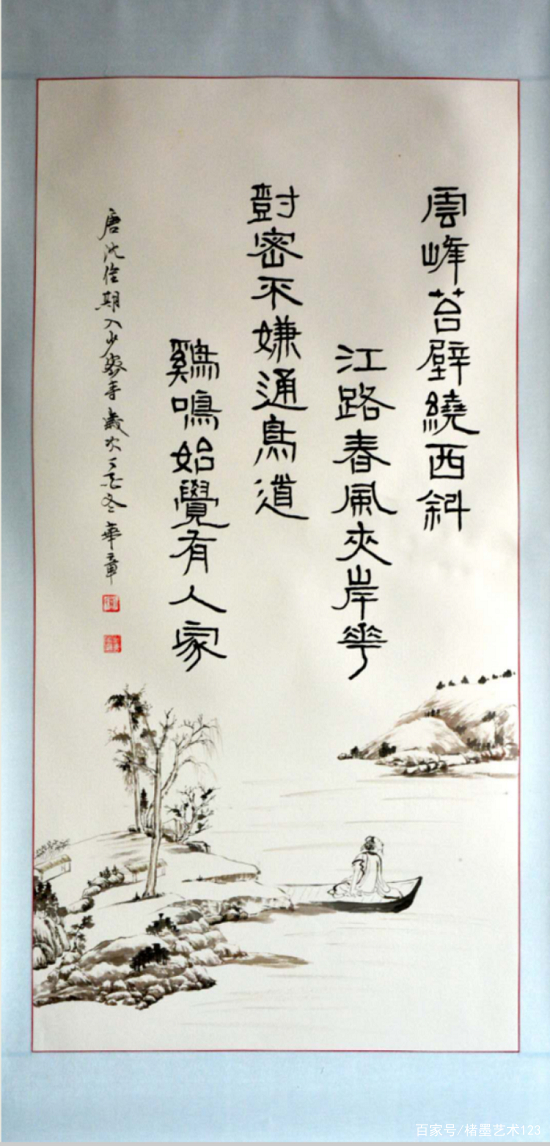 雲峰苔壁繞西斜
江路春風夾岸花
對密不嫌通鳥道
鷄鳴始覺有人家
唐沈佺期入少密寺歲次丁亥冬華章
百家号/楮墨艺术123